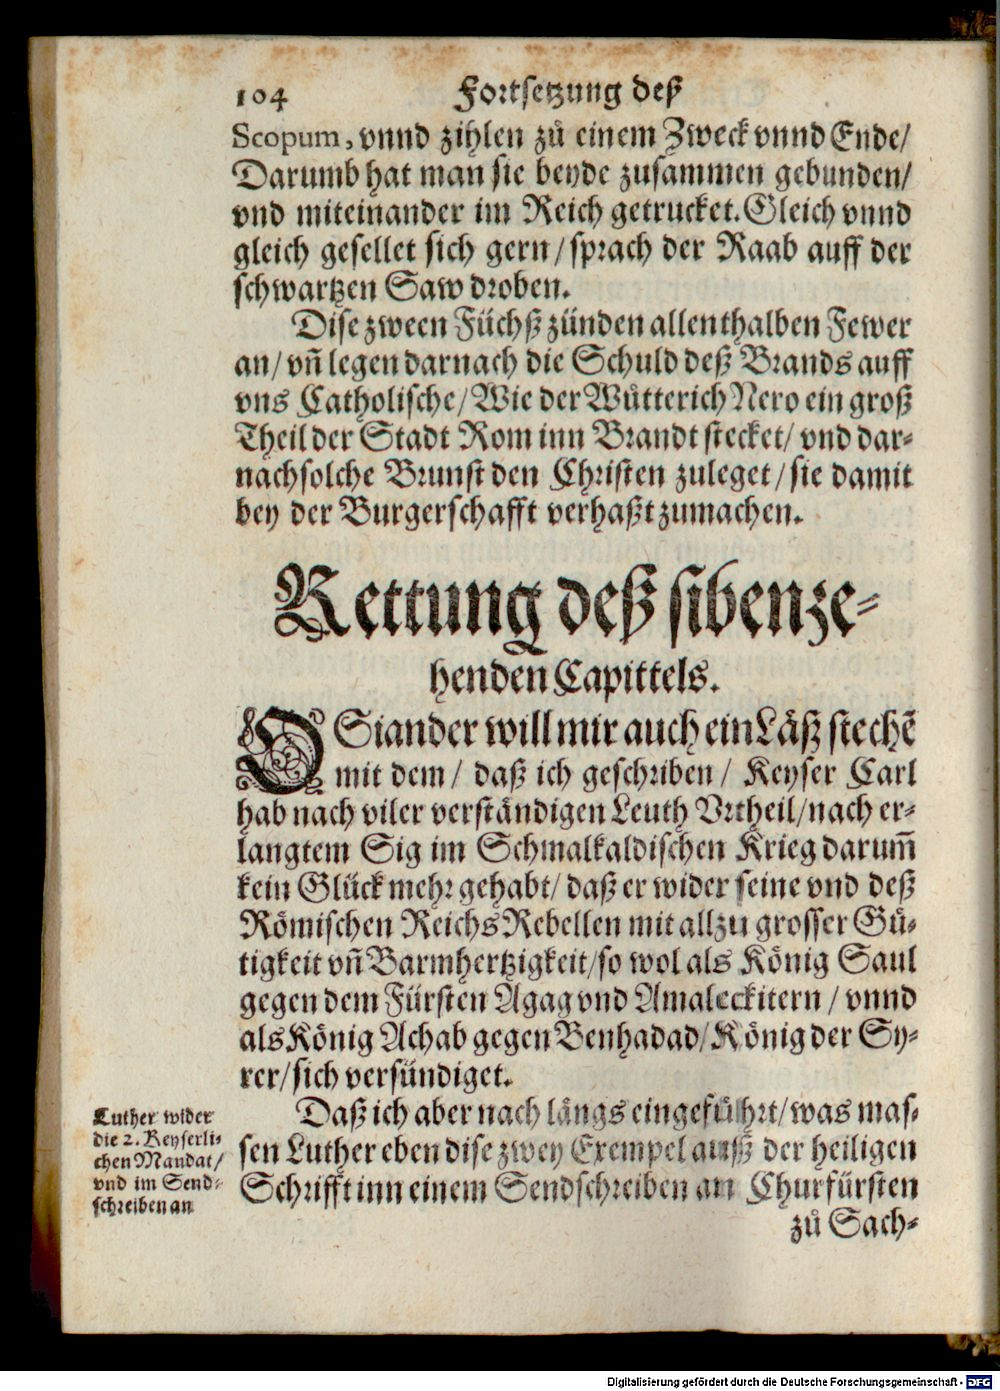 104 Fortsetzung deß
Scopum, vnnd zihlen zů einem Zweck vnnd Ende/
Darumb hat man sie beyde zusammen gebunden/
vnd miteinander im Reich getrucket. Gleich vnnd
gleich gesellet sich gern/ sprach der Raab auff der
schwartzen Saw droben.
Dise zween Füchß zünden allenthalben Fewer
an/ vñ legen darnach die Schuld deß Brands auff
vns Catholische/ Wie der Wůtterich Nero ein groß
Theil der Stadt Rom inn Brandt stecket/ vnd dar-
nach solche Brunst den Christen zuleget/ sie damit
bey der Burgerschafft verhaßt zumachen.
Rettung deß sibenze-
henden Capittels.
OSiander will mir auch ein Läß stechẽ
mit dem/ daß ich geschriben/ Keyser Carl
hab nach viler verständigen Leuth Vrtheil/ nach er-
langtem Sig im Schmalkaldischen Krieg darum̃
kein Glück mehr gehabt/ daß er wider seine vnd deß
Römischen Reichs Rebellen mit allzu grosser Gü-
tigkeit vñ Barmhertzigkeit/ so wol als König Saul
gegen dem Fürsten Agag vnd Amaleckitern/ vnnd
als König Achab gegen Benhadad/ König der Sy-
rer/ sich versündiget.
Daß ich aber nach längs eingeführt/ was mas-
sen Luther eben dise zwey Exempel auß der heiligen
Schrifft inn einem Sendschreiben an Churfürsten
zů Sach-
Luther wider
die 2. Keyserli-
chen Mandat/
vnd im Send-
schreiben an
Digitalisierung gefördert durch die Deutsche Forschungsgemeinschaft - DFG